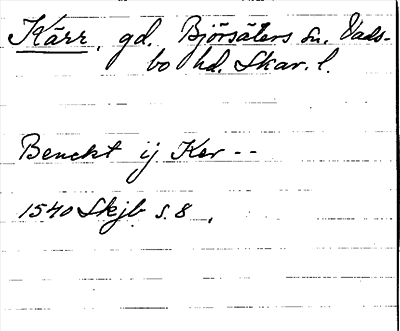 Kärr, gd. Björsäters sn. Vads-
bo hd. Skar. l.
Benckt ij Ker --
1540 Skjb s. 8.